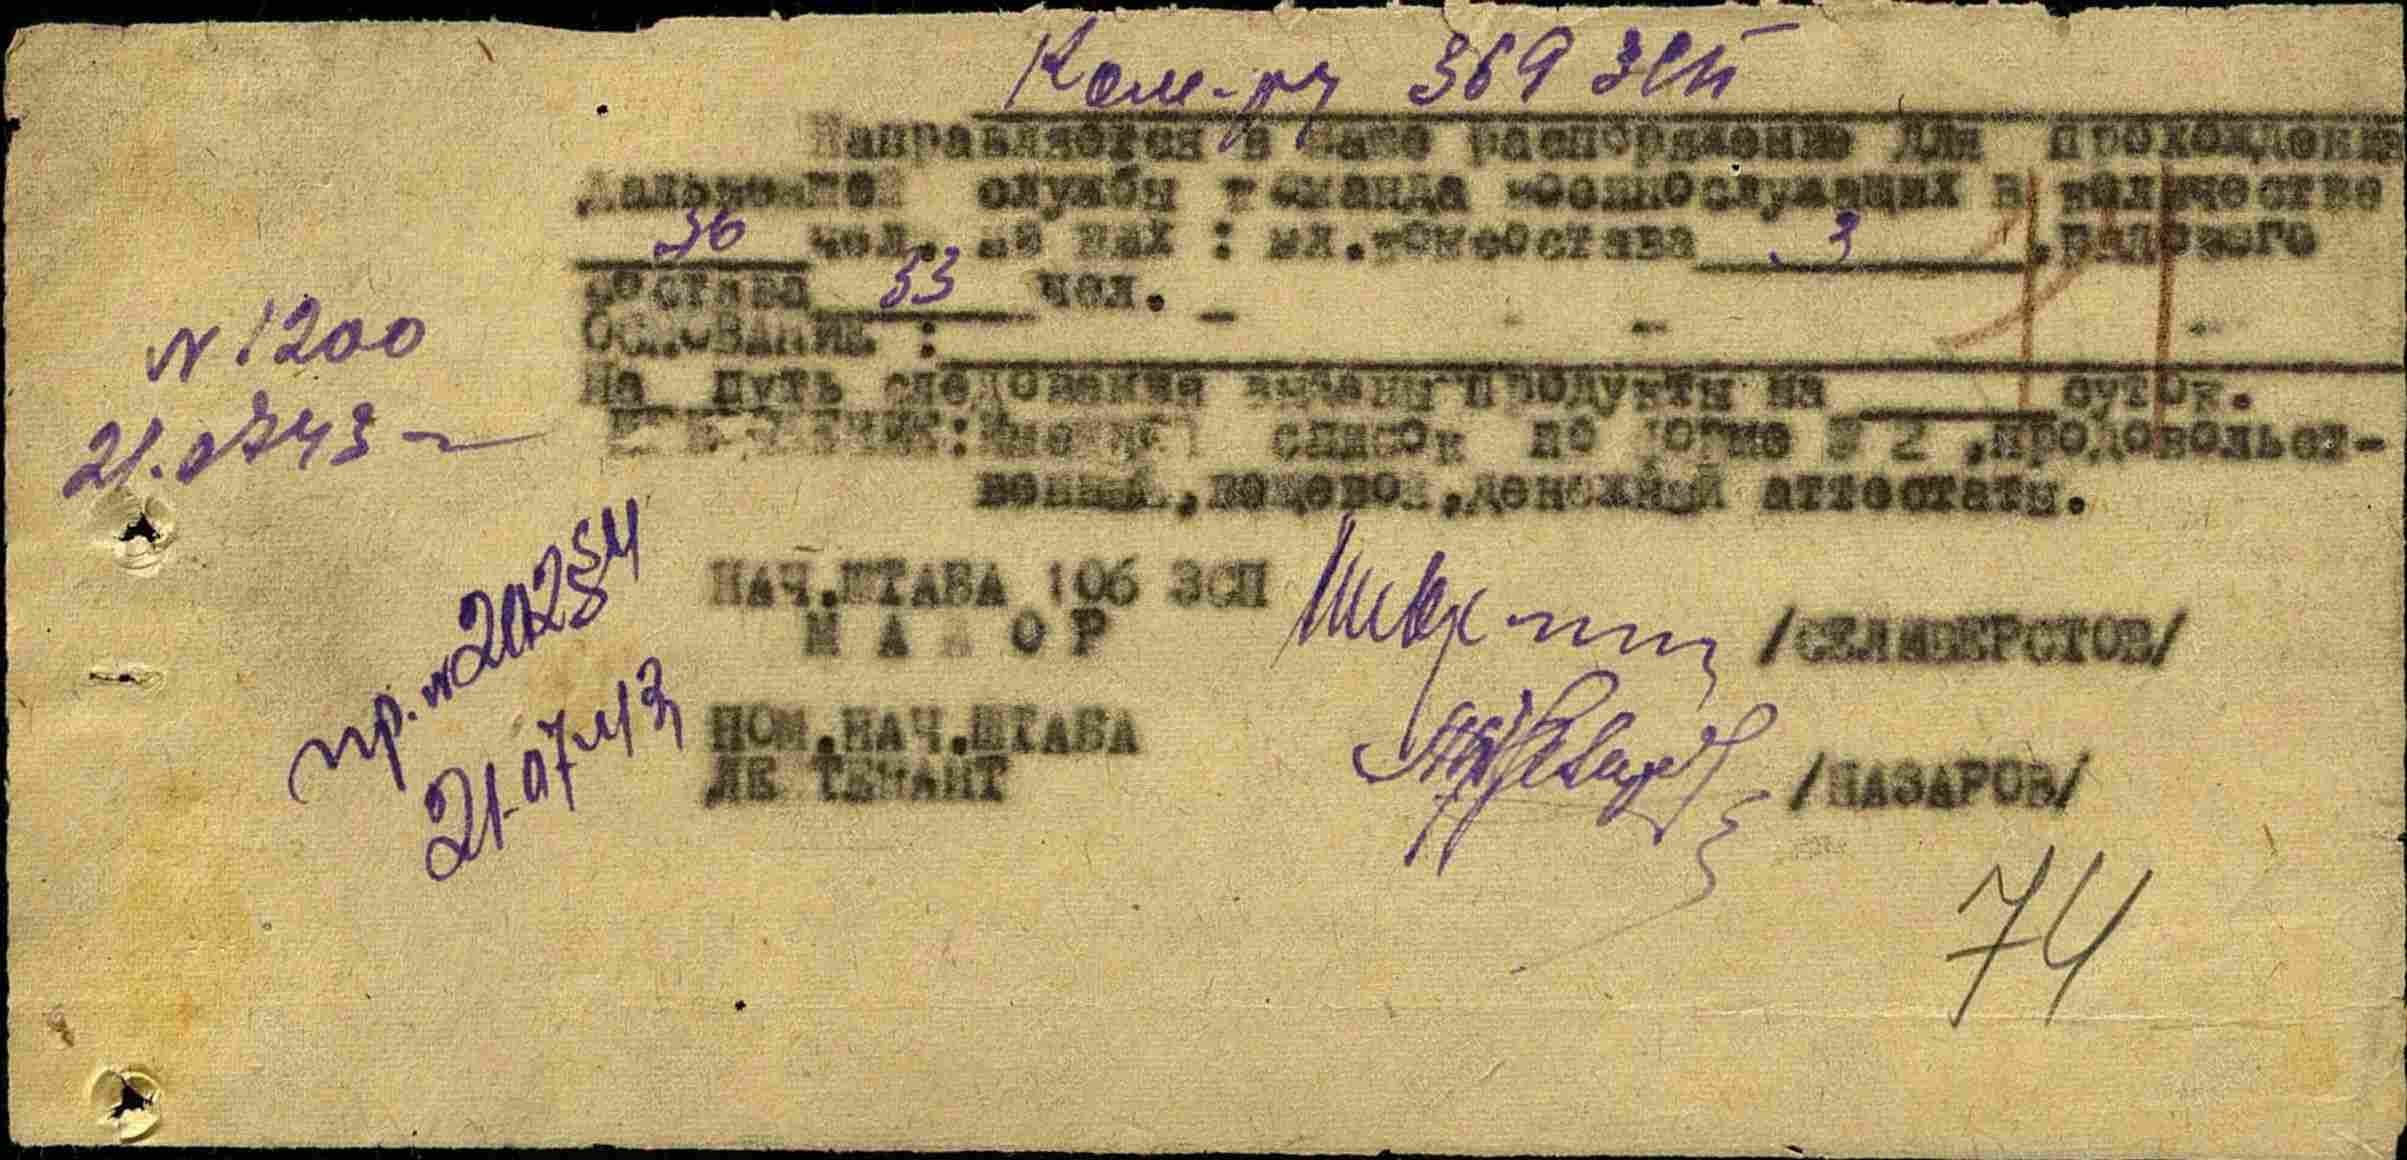 Ком-ру 369 ЗСП
Направляется в Ваше распоряжение для прохождения
дальнейшей службы команда военнослужащих в количестве
36 чел. из них : мл.комсостава 3 ,рядового
состава 33 чел.
ОСНОВАНИЕ :
На путь следования выданы продукты на суток.
список по форме № 2 ,продовольст-
венный,вещевой,денежный аттестаты.
НАЧ.ШТАБА 106 ЗСП
МАЙОР /СЕЛИВЕРСТОВ/
ПОМ.НАЧ.ШТАБА
ЛЕЙТЕНАНТ /НАЗАРОВ/
N 1200
21.0743
пр. N
21.07.43
74